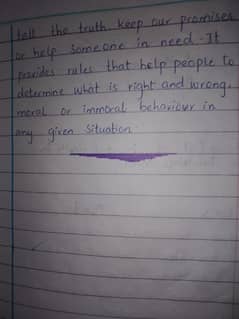 tell the truth, keep our promises
or help someone in need. It
provides rules that help people to
determine what is right and wrong,
moral or immoral behaviour in
any given situation